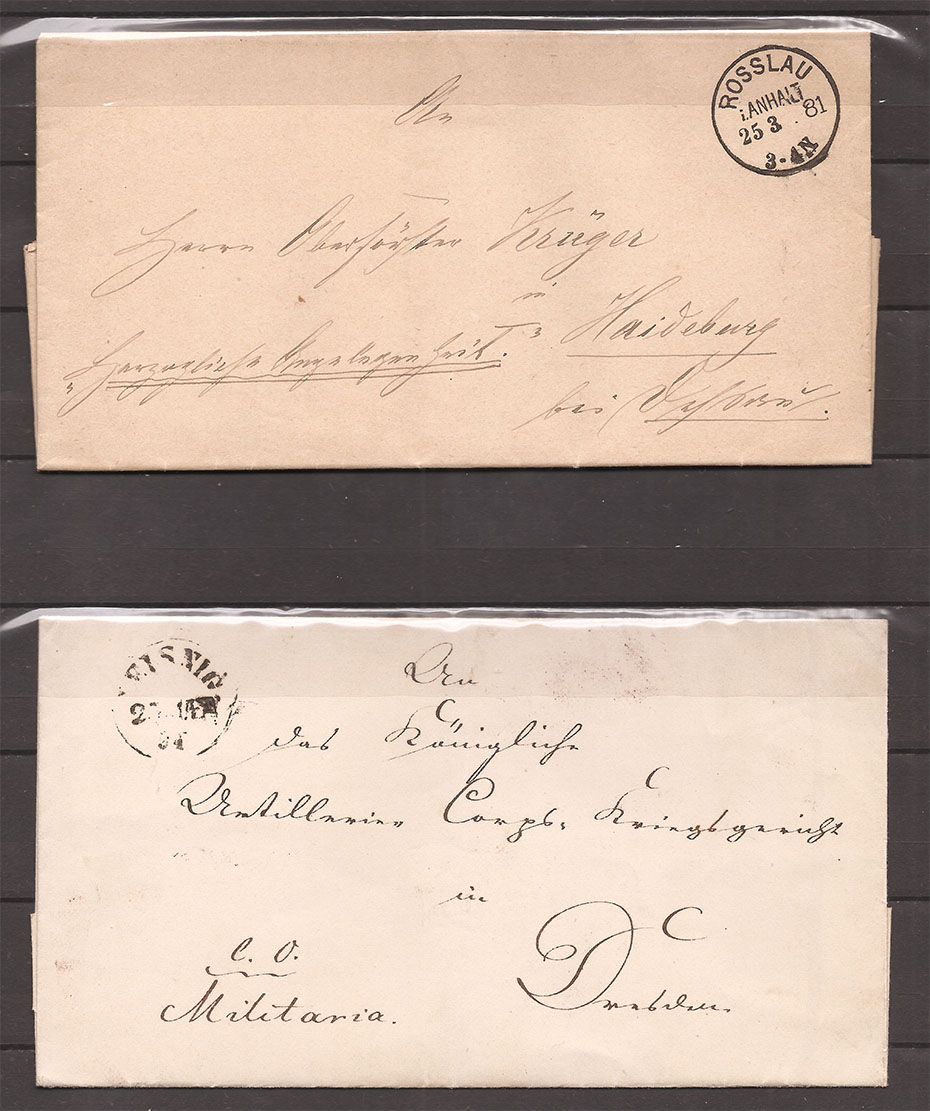 ROSSLAU
i. ANHALT
25 3 81
3-4N
An
Herrn Oberförster Krüger
in
„Herzogliche Angelegenheit.“
Haideburg
bei Dessau.
EISNIG
54
An
das Königliche
Artillerie- Corps- Kriegsgericht
in
Dresden.
C. O.
Militaria.